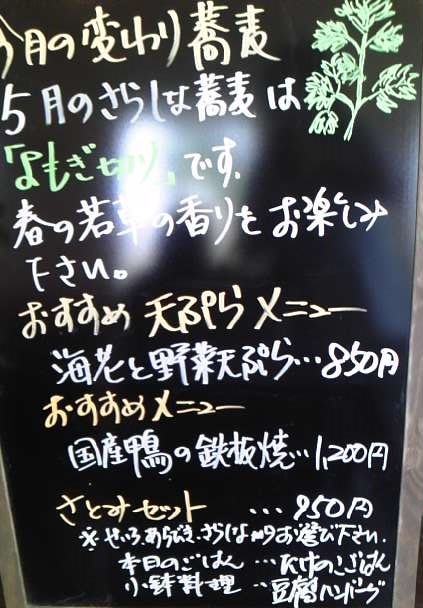 今月の変わり蕎麦
5月のさらしな蕎麦は
「よもぎ切り」です。
春の若草の香りをお楽しみ
下さい。
おすすめ 天ぷらメニュー
海老と野菜天ぷら…850円
おすすめメニュー
国産鴨の鉄板焼…1,200円
さとみセット …950円
※せいろ、あらびき、さらしなよりお選び下さい。
本日のごはん …たけのこごはん
小鉢料理 …豆腐ハンバーグ